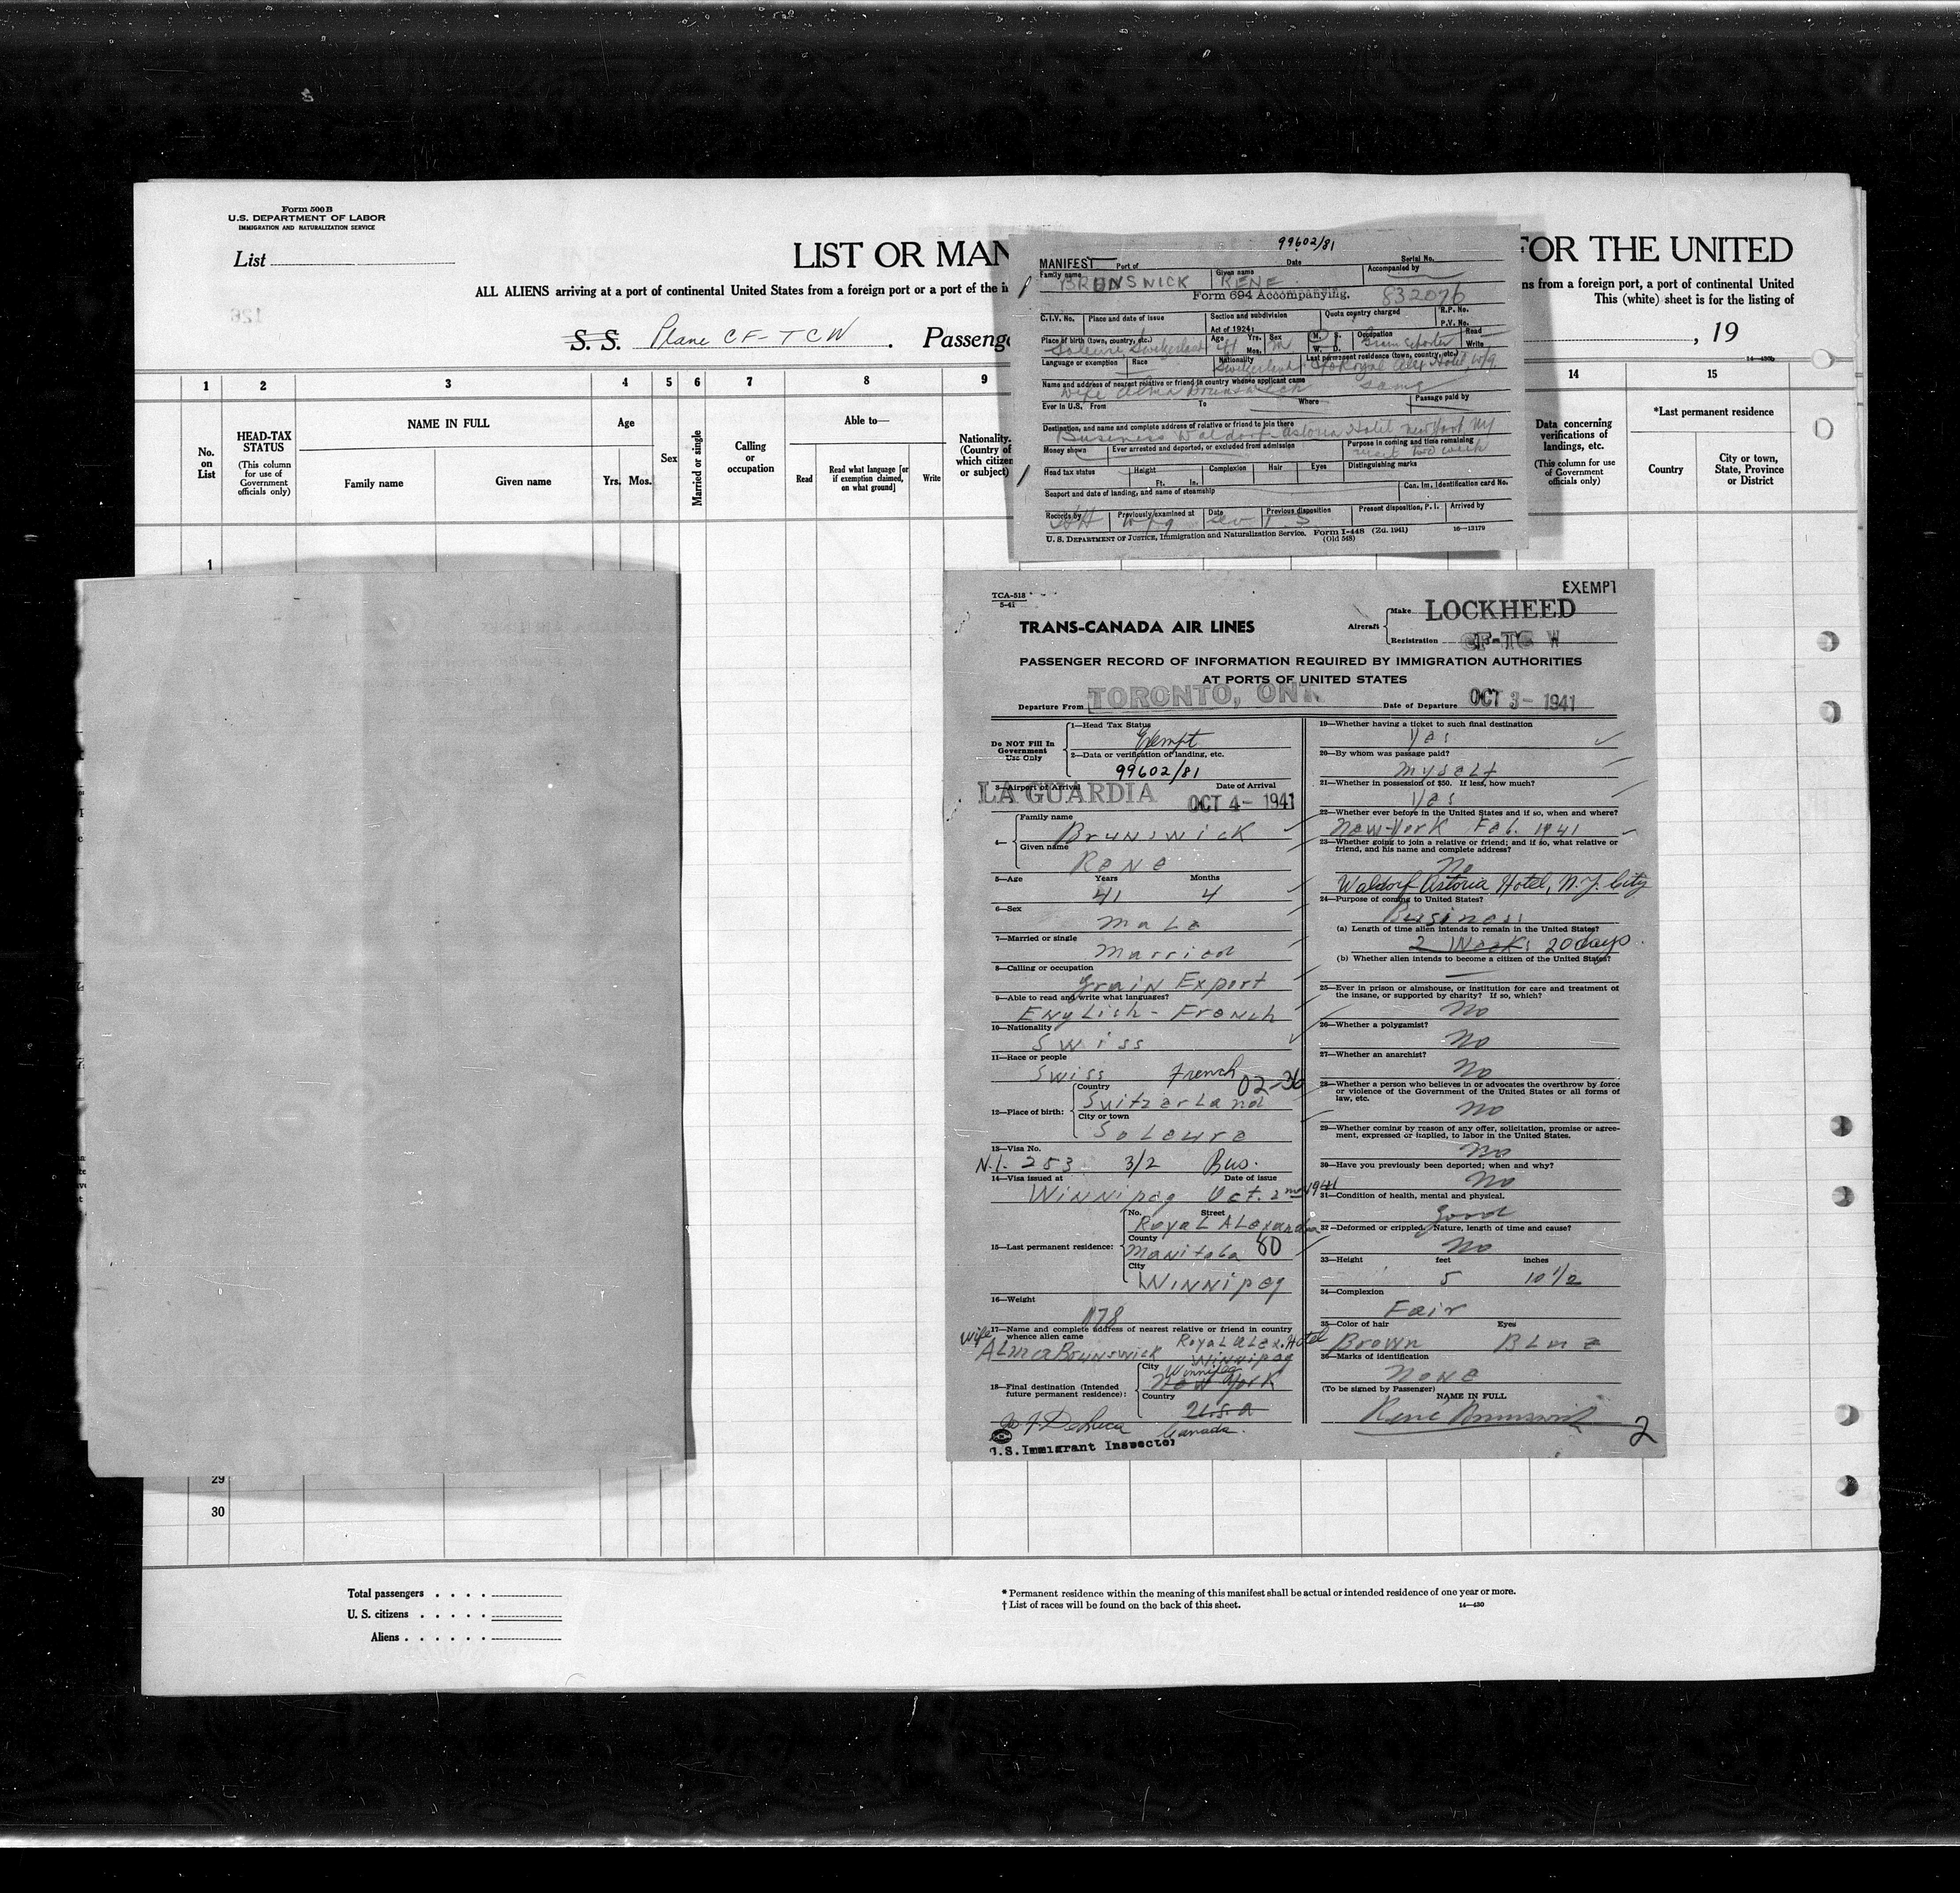 Form 500B
U.S. DEPARTMENT OF LABOR
IMMIGRATION AND NATURALIZATION SERVICE
List
LIST OR MAN
FOR THE UNITED
ALL ALIENS arriving at a port of continental United States from a foreign port or a port of the in
ns from a foreign port, a port of continental United
This (white) sheet is for the listing of
S. S. Plane CF-TCW . Passenge
, 19
14—430b
1 2 3 4 5 6 7 8 9 14 15
No. on List
HEAD-TAX STATUS
(This column for use of Government officials only)
NAME IN FULL
Family name
Given name
Age
Yrs. Mos.
Sex
Married or single
Calling or occupation
Able to—
Read
Read what language [or if exemption claimed, on what ground]
Write
Nationality. (Country of which citizen or subject)
Data concerning verifications of landings, etc.
(This column for use of Government officials only)
*Last permanent residence
Country
City or town, State, Province or District
1
29
30
Total passengers
U. S. citizens
Aliens
* Permanent residence within the meaning of this manifest shall be actual or intended residence of one year or more.
† List of races will be found on the back of this sheet.
14—430
99602/81
MANIFEST
Port of
Date
Serial No.
Family name BRUNSWICK
Given name RENE
Accompanied by
Form 694 Accompanying. 832076
C.I.V. No.
Place and date of issue
Section and subdivision
Act of 1924:
Quota country charged
R.P. No.
P.V. No.
Place of birth (town, country, etc.) Soleure Switzerland
Age 41 Yrs. Mos.
Sex M
M. S. W. D.
Occupation Grain Exporter
Read
Write
Language or exemption
Race
Nationality Switzerland
Last permanent residence (town, country, etc.) Royal Alex Hotel, Wpg
Name and address of nearest relative or friend in country whence applicant came
Wife Alma Brunswick same
Ever in U.S. From To Where
Passage paid by
Destination, and name and complete address of relative or friend to join there
Business Waldorf-Astoria Hotel New York NY
Money shown
Ever arrested and deported, or excluded from admission
Purpose in coming and time remaining
visit two weeks
Head tax status
Height Ft. In.
Complexion
Hair
Eyes
Distinguishing marks
Seaport and date of landing, and name of steamship
Can. Im. Identification card No.
Records by
Previously examined at Wpg
Date
Previous disposition
Present disposition, P. I.
Arrived by
U. S. DEPARTMENT OF JUSTICE, Immigration and Naturalization Service. Form I-448 (Zd. 1941)
(Old 548)
16—13179
TCA-518
5-41
EXEMPT
TRANS-CANADA AIR LINES
Aircraft
Make LOCKHEED
Registration CF-TC W
PASSENGER RECORD OF INFORMATION REQUIRED BY IMMIGRATION AUTHORITIES
AT PORTS OF UNITED STATES
Departure From TORONTO, ONT.
Date of Departure OCT 3 - 1941
Do NOT Fill In Government Use Only
1—Head Tax Status
Exempt
2—Data or verification of landing, etc.
99602/81
3—Airport of Arrival
Date of Arrival
LA GUARDIA OCT 4 - 1941
4—
Family name
Brunswick
Given name
Rene
5—Age Years Months
41 4
6—Sex
Male
7—Married or single
Married
8—Calling or occupation
Grain Export
9—Able to read and write what languages?
English - French
10—Nationality
Swiss
11—Race or people
Swiss French 02-36
12—Place of birth:
Country
Suitzerland
City or town
Soleure
13—Visa No.
N.I. 253 3/2 Bus.
14—Visa issued at Date of issue
Winnipeg Oct. 2nd 1941
15—Last permanent residence:
No. Street
Royal Alexandra
County
Manitoba 80
City
Winnipeg
16—Weight
178
17—Name and complete address of nearest relative or friend in country whence alien came
Wife
Alma Brunswick Royal Alex. Hotel
Winnipeg
18—Final destination (Intended future permanent residence):
City
Winnipeg
New York
Country
U.S.A
Canada.
U.S. Immigrant Inspector
19—Whether having a ticket to such final destination
Yes
20—By whom was passage paid?
Myself
21—Whether in possession of $50. If less, how much?
Yes
22—Whether ever before in the United States and if so, when and where?
New-York Feb. 1941
23—Whether going to join a relative or friend; and if so, what relative or
friend, and his name and complete address?
No
Waldorf Astoria Hotel, N.Y. City
24—Purpose of coming to United States?
Business
(a) Length of time alien intends to remain in the United States?
2 Weeks 20 days.
(b) Whether alien intends to become a citizen of the United States?
25—Ever in prison or almshouse, or institution for care and treatment of
the insane, or supported by charity? If so, which?
No
26—Whether a polygamist?
No
27—Whether an anarchist?
No
28—Whether a person who believes in or advocates the overthrow by force
or violence of the Government of the United States or all forms of
law, etc.
No
29—Whether coming by reason of any offer, solicitation, promise or agree-
ment, expressed or implied, to labor in the United States.
No
30—Have you previously been deported; when and why?
No
31—Condition of health, mental and physical.
Good
32—Deformed or crippled. Nature, length of time and cause?
No
33—Height feet inches
5 10 1/2
34—Complexion
Fair
35—Color of hair Eyes
Brown Blue
36—Marks of identification
None
(To be signed by Passenger)
NAME IN FULL
Rene Brunswick
2